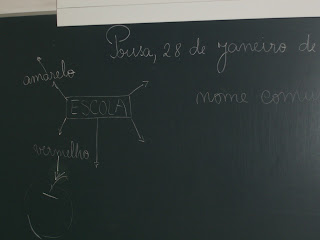 Pousa, 28 de janeiro de
nome comu
amarelo
ESCOLA
vermelho